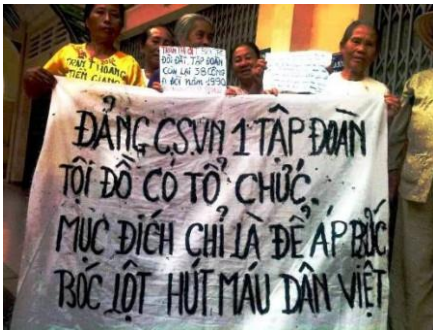 TIỀN GIANG
ĐÒI ĐẤT TẬP ĐOÀN
CÒN LẠI 38 CÔNG
ĐẢNG CSVN 1 TẬP ĐOÀN
TỘI ĐỒ CÓ TỔ CHỨC.
MỤC ĐÍCH CHỈ LÀ ĐỂ ÁP BỨC
BÓC LỘT HÚT MÁU DÂN VIỆT